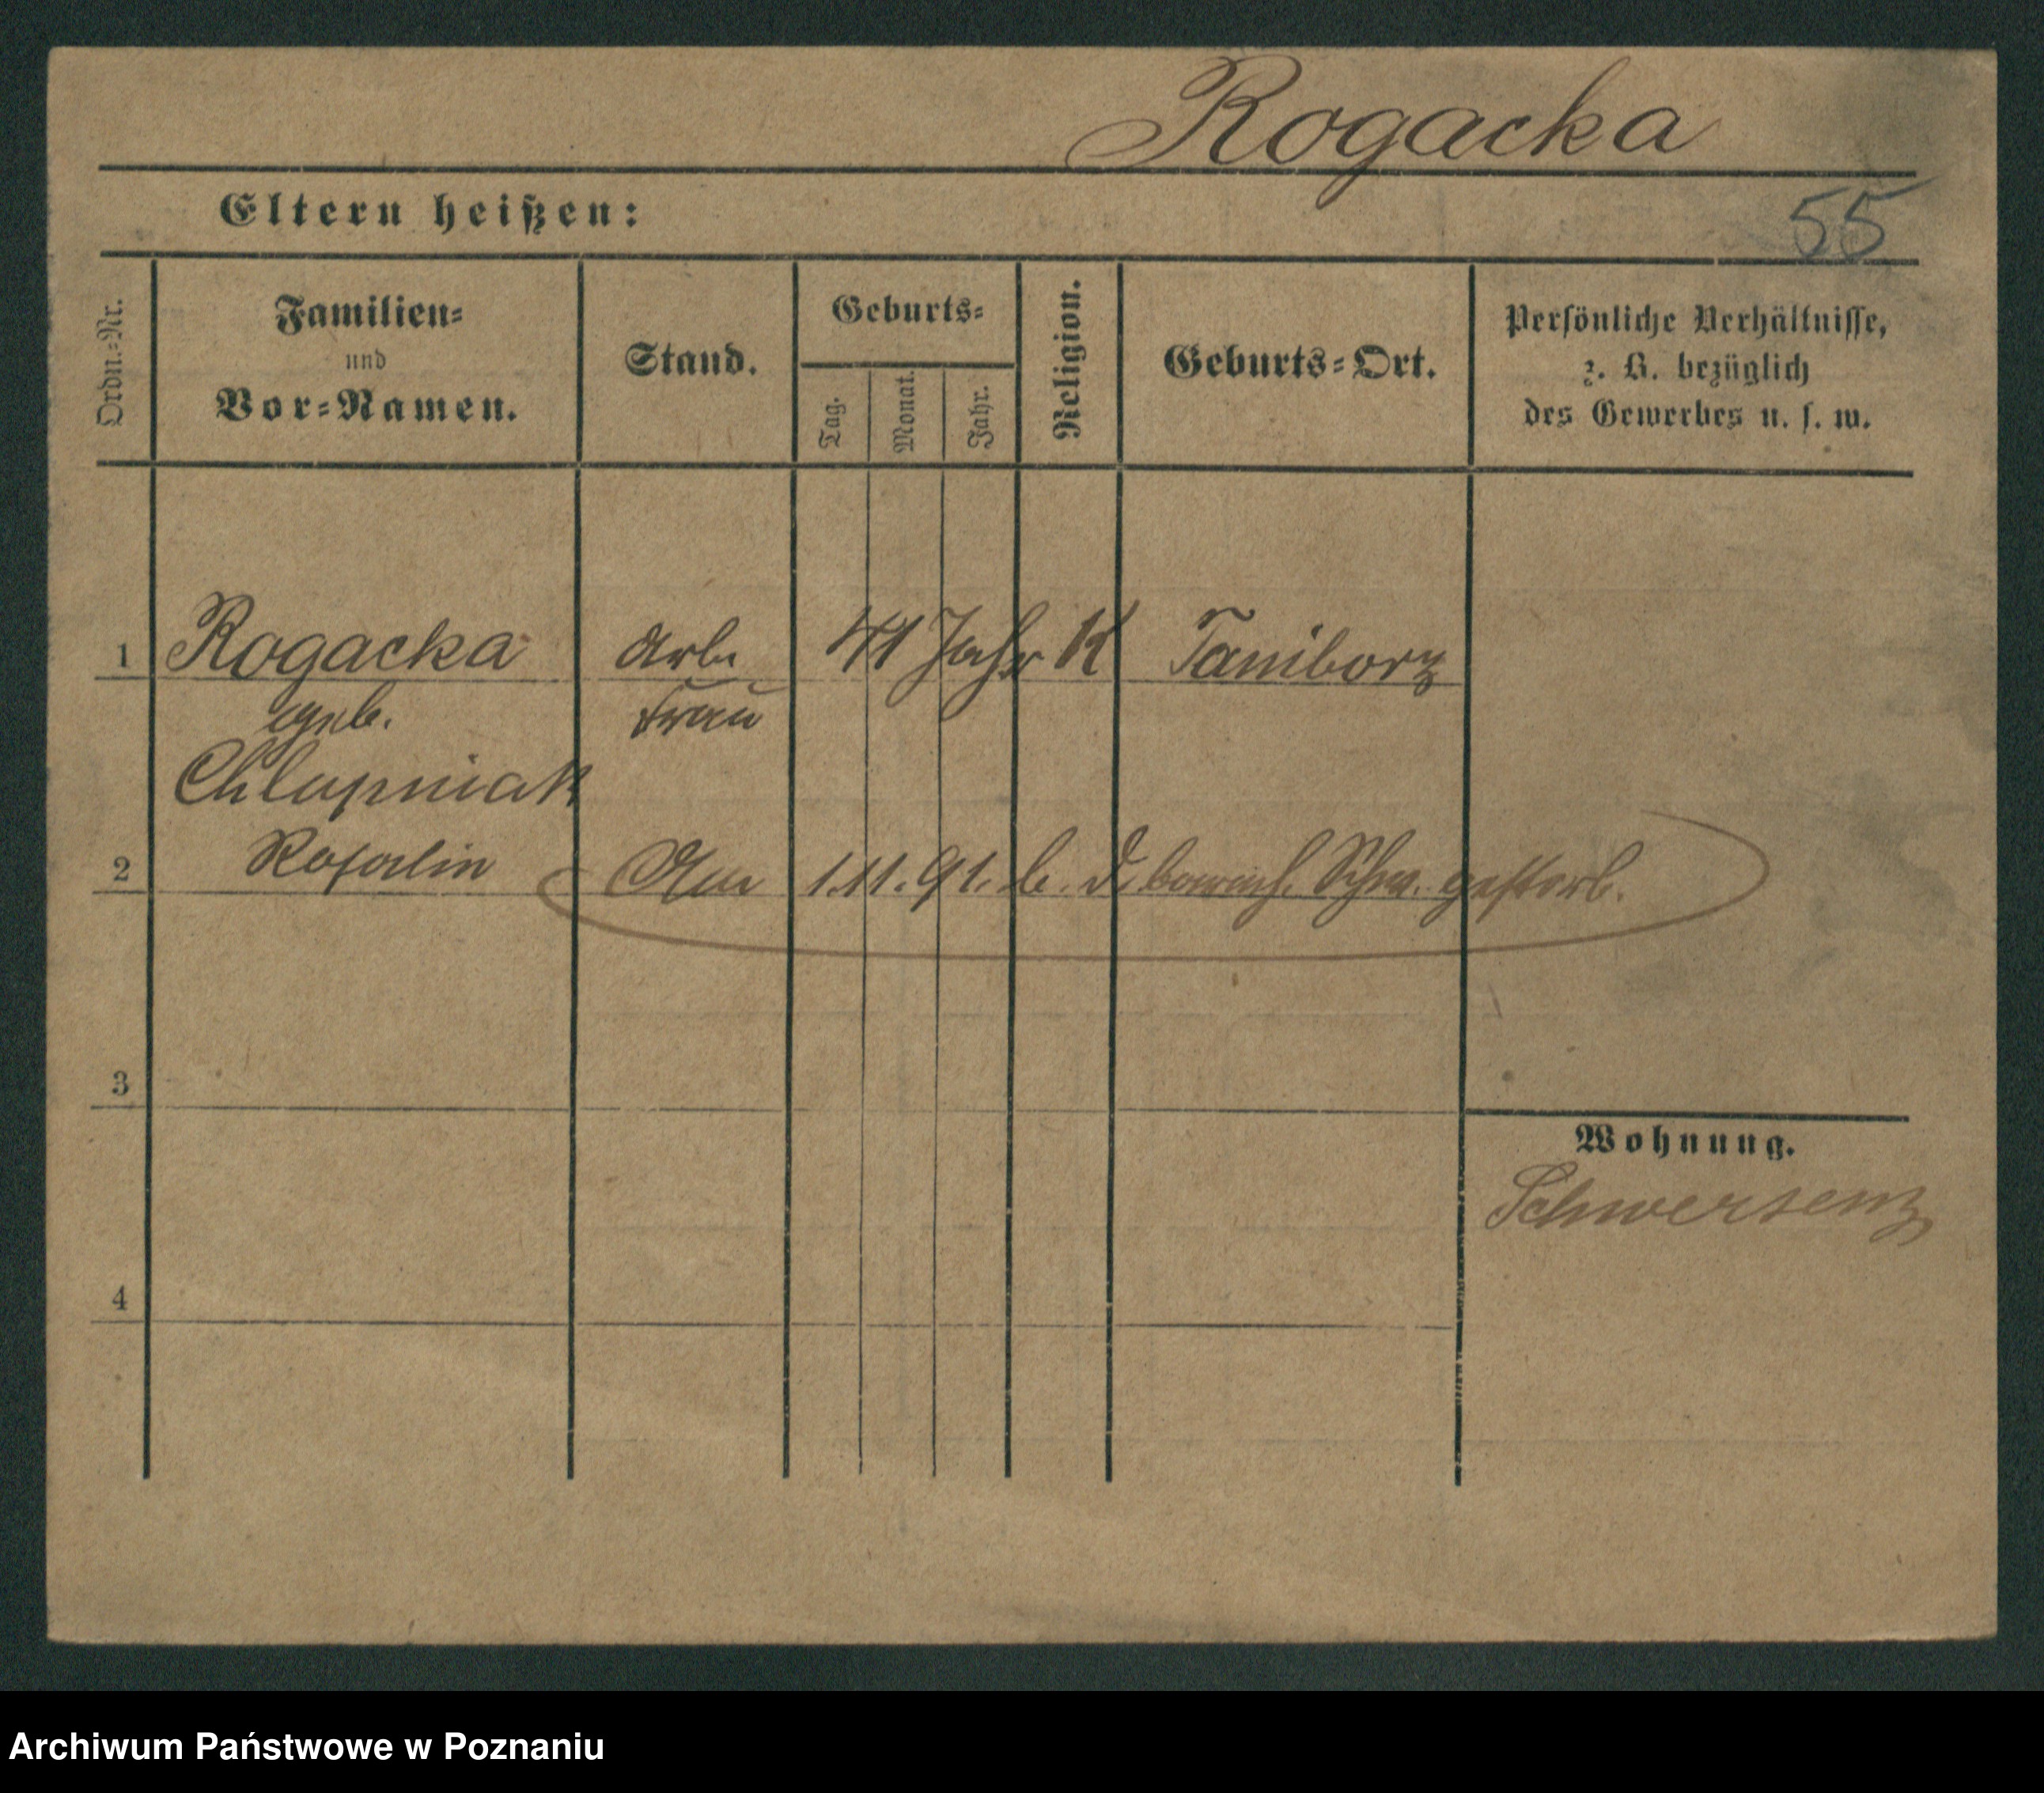 Rogacka
Eltern heißen:
55
Ordn.-Nr.
Familien-
und
Vor-Namen.
Stand.
Geburts-
Tag.
Monat.
Jahr.
Religion.
Geburts-Ort.
Persönliche Verhältnisse,
z. B. bezüglich
des Gewerbes u. s. w.
1 Rogacka Arb. 41 Jahr K Taniborz
geb. Frau
Chlapniak
2 Rosalin Am 1.11.91. b. d. Schw. gestorb.
3
Wohnung.
Schwersenz
4
Archiwum Państwowe w Poznaniu